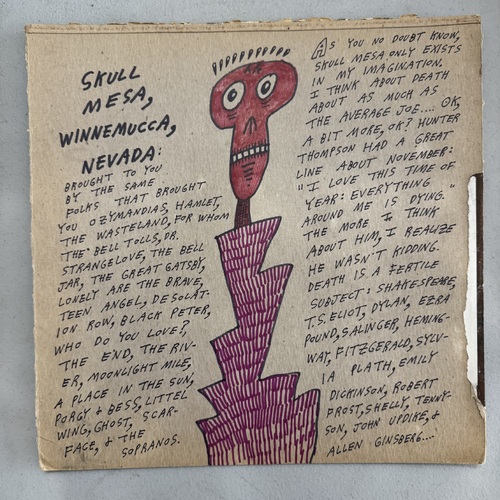 SKULL
MESA,
WINNEMUCCA,
NEVADA:
BROUGHT TO YOU
BY THE SAME
FOLKS THAT BROUGHT
YOU OZYMANDIAS, HAMLET,
THE WASTELAND, FOR WHOM
THE BELL TOLLS, DR.
STRANGELOVE, THE BELL
JAR, THE GREAT GATSBY,
LONELY ARE THE BRAVE,
TEEN ANGEL, DESOLAT-
ION ROW, BLACK PETER,
WHO DO YOU LOVE?
THE END, THE RIV-
ER, MOONLIGHT MILE,
A PLACE IN THE SUN,
PORGY & BESS, LITTEL
WING, GHOST, SCAR-
FACE, & THE
SOPRANOS.
AS YOU NO DOUBT KNOW,
SKULL MESA ONLY EXISTS
IN MY IMAGINATION.
I THINK ABOUT DEATH
ABOUT AS MUCH AS
THE AVERAGE JOE.... OK,
A BIT MORE, OK? HUNTER
THOMPSON HAD A GREAT
LINE ABOUT NOVEMBER:
"I LOVE THIS TIME OF
YEAR: EVERYTHING
AROUND ME IS DYING."
THE MORE I THINK
ABOUT HIM, I REALIZE
HE WASN'T KIDDING.
DEATH IS A FERTILE
SUBJECT: SHAKESPEARE,
T.S. ELIOT, DYLAN, EZRA
POUND, SALINGER, HEMING-
WAY, FITZGERALD, SYLV-
IA PLATH, EMILY
DICKINSON, ROBERT
FROST, SHELLY, TENNY-
SON, JOHN UPDIKE, &
ALLEN GINSBERG....